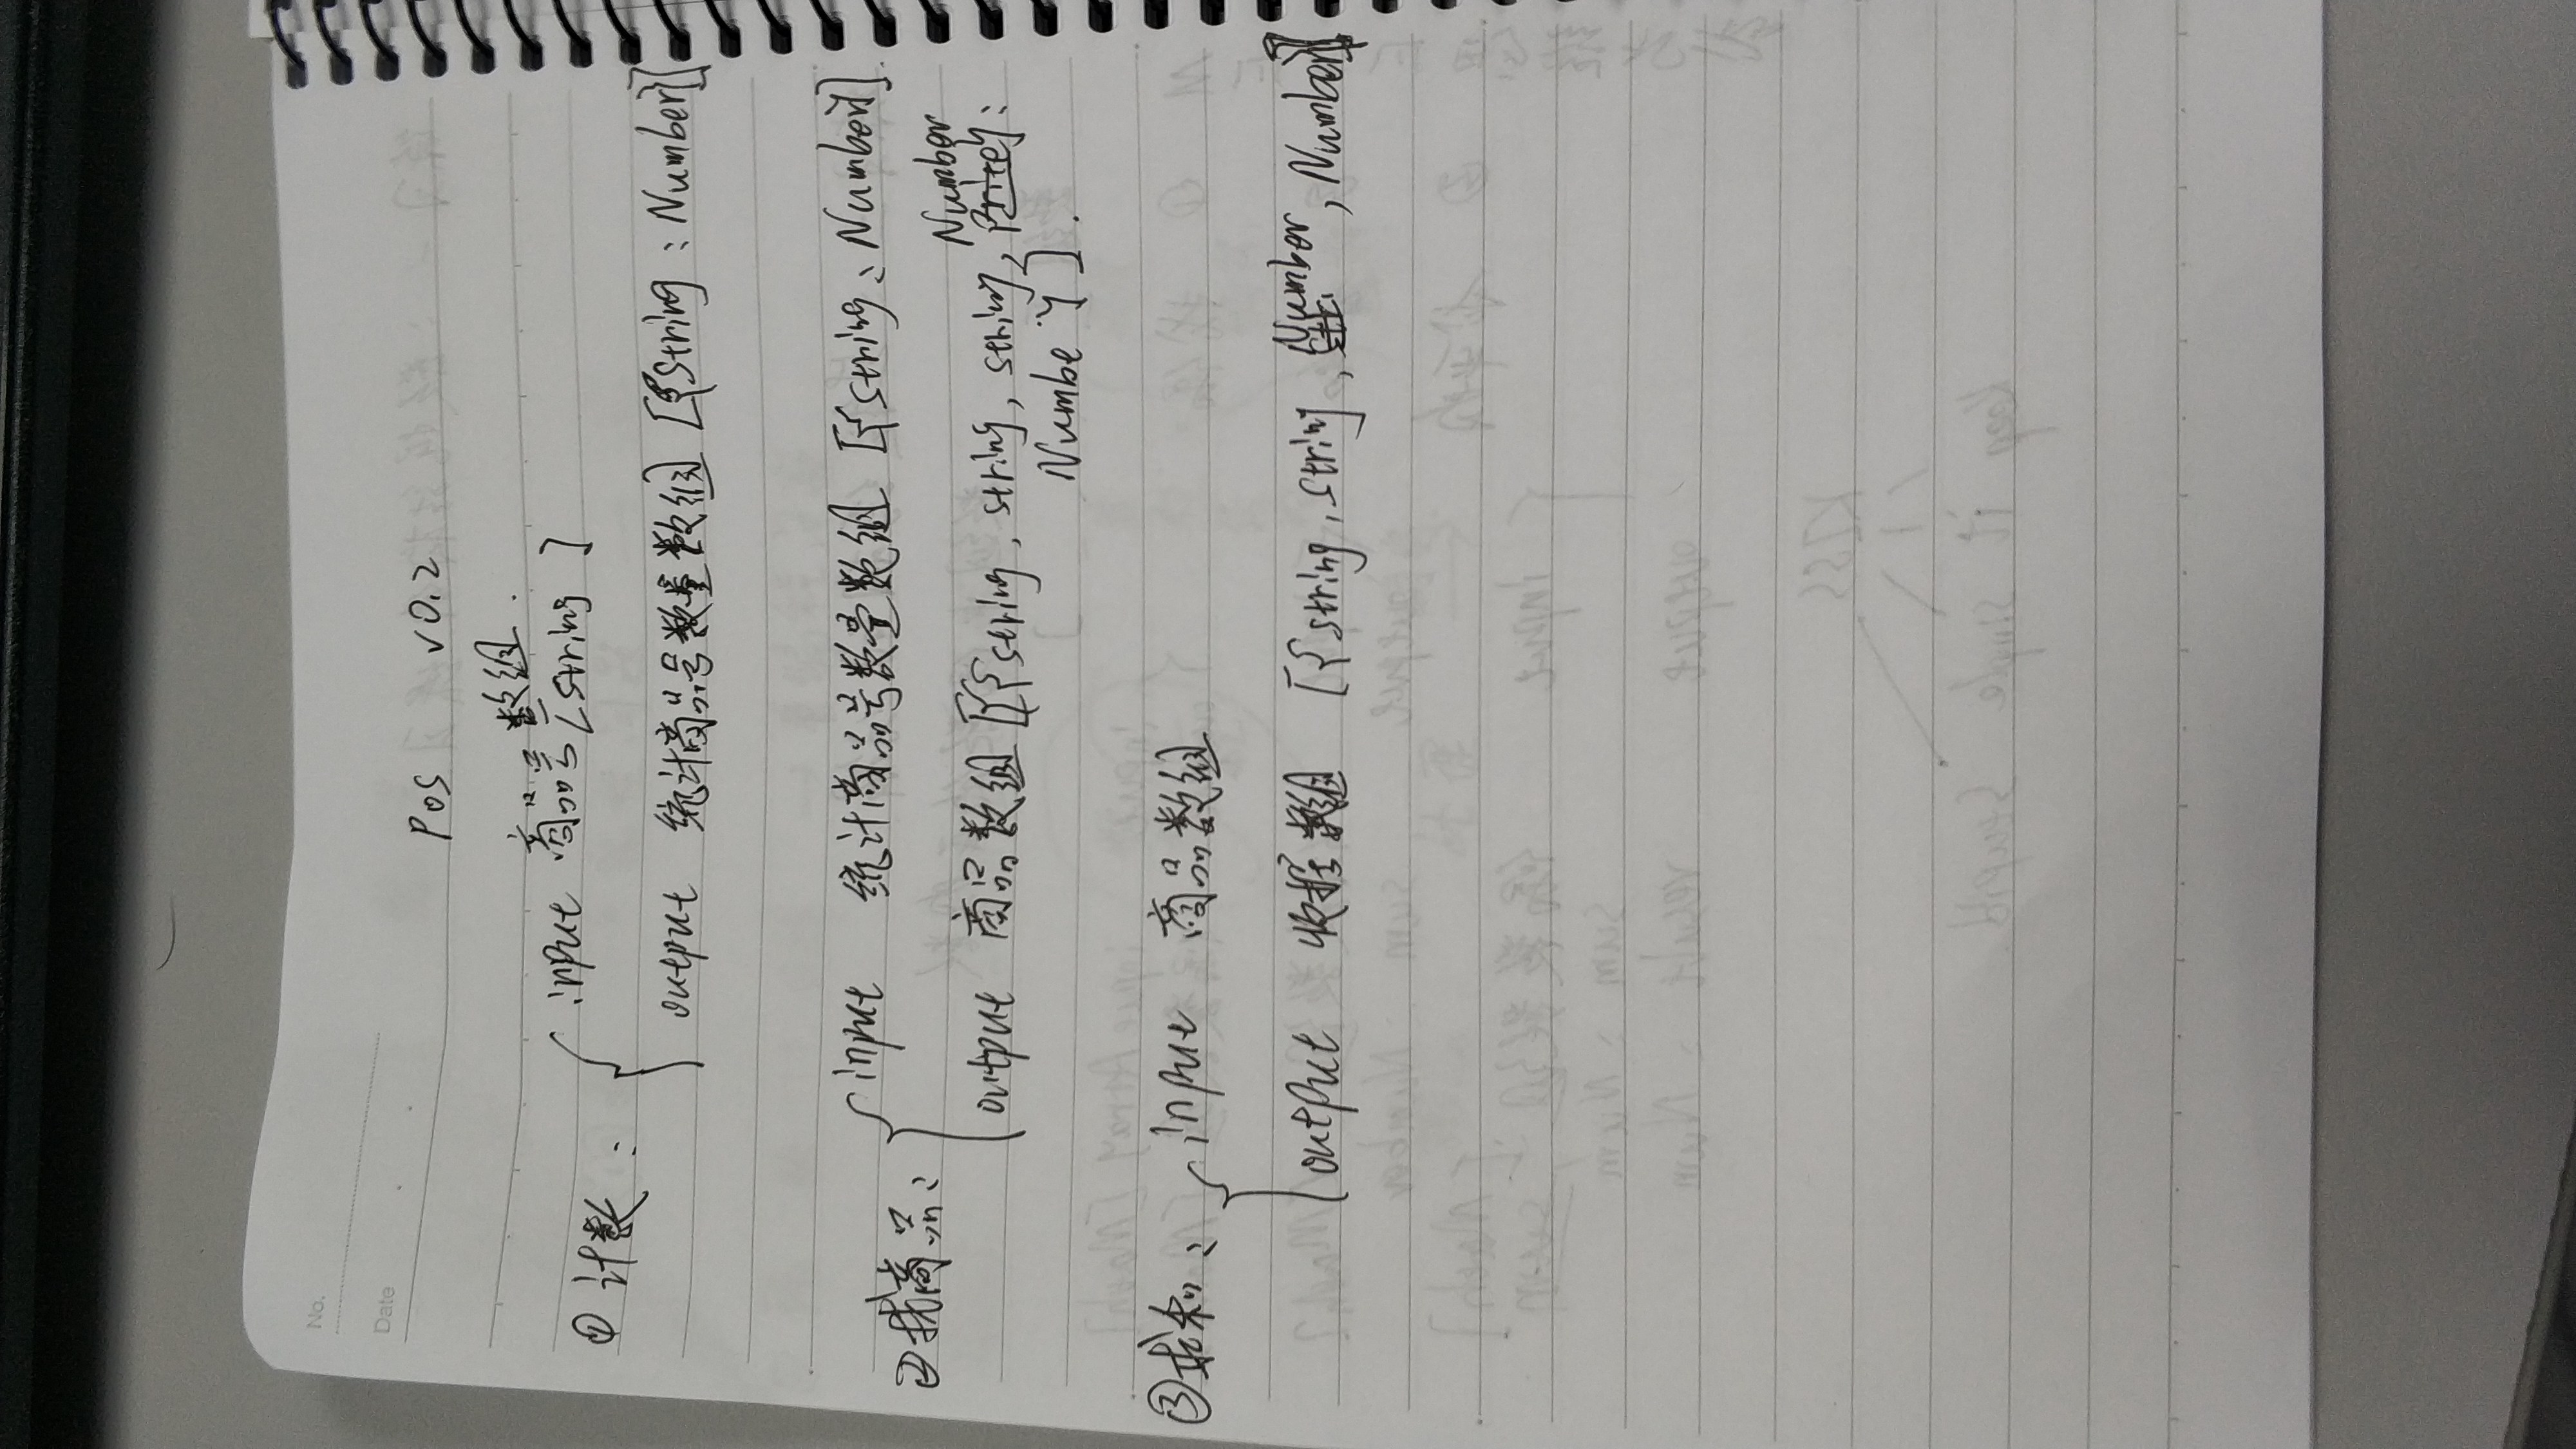 No.
Date
Pos v0.2
① 计数： { input 商品号数组. [string]
output 统计商品号数量数组 [{String : Number}]
② 找商品： { input 统计商品号数量数组 [{string : Number}].
output 商品数组 [{{string, string, string, Number}:
Number}].
③ 求和： { input 商品数组
output 收据数组 [{string, string, Number, Number}]